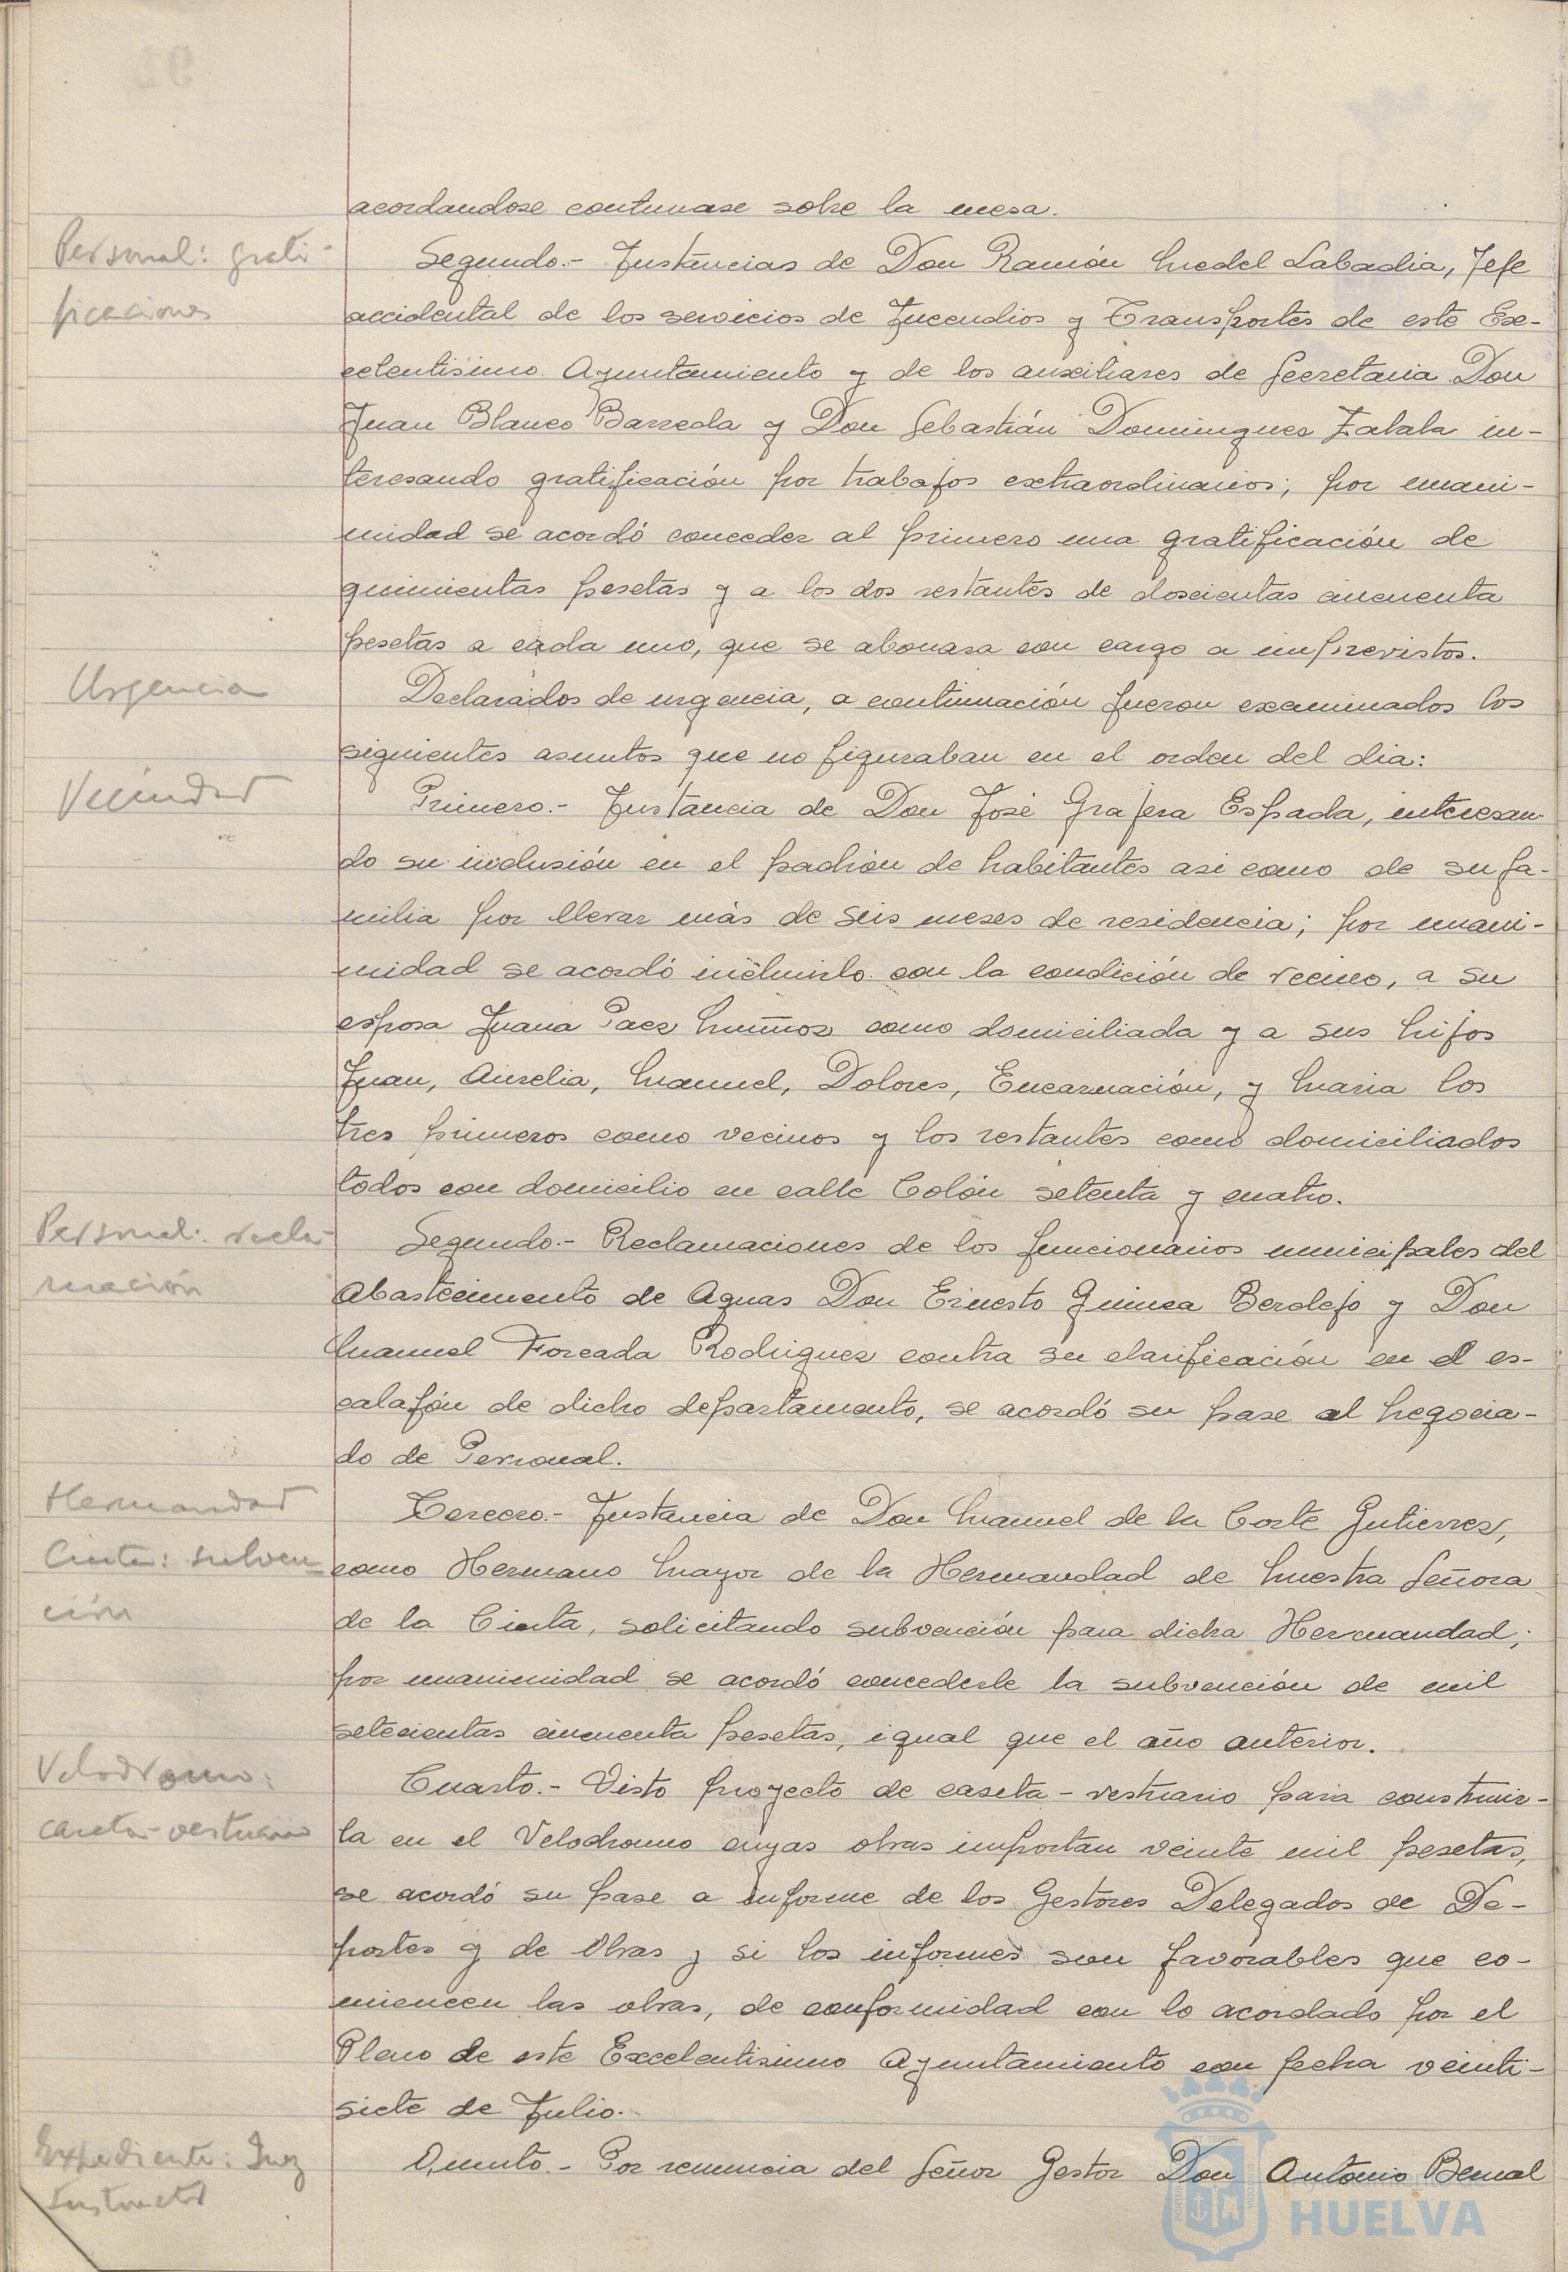 acordandose continuase sobre la mesa.
Personal: grati-
ficaciones
Segundo.- Instancias de Don Ramón Medel Labadia, Jefe
accidental de los servicios de Incendios y Transportes de este Ex-
celentisimo Ayuntamiento y de los auxiliares de Secretaria Don
Juan Blanco Barreda y Don Sebastián Dominguez Zabala in-
teresando gratificación por trabajos extraordinarios; por unani-
midad se acordó conceder al primero una gratificación de
quinientas pesetas y a los dos restantes de doscientas cincuenta
pesetas a cada uno, que se abonara con cargo a imprevistos.
Urgencia
Declarados de urgencia, a continuación fueron examinados los
siguientes asuntos que no figuraban en el orden del dia:
Vecindad
Primero.- Instancia de Don José Grajera Espada, interesan-
do su inclusión en el padrón de habitantes asi como de su fa-
milia por llevar más de seis meses de residencia; por unani-
midad se acordó incluirlo con la condición de vecino, a su
esposa Juana Paez Muñoz como domiciliada y a sus hijos
Juan, Aurelia, Manuel, Dolores, Encarnación, y Maria los
tres primeros como vecinos y los restantes como domiciliados
todos con domicilio en calle Colón setenta y cuatro.
Personal: recla-
mación
Segundo.- Reclamaciones de los funcionarios municipales del
Abastecimiento de Aguas Don Ernesto Guinea Berdejo y Don
Manuel Forcada Rodriguez contra su clasificación en el es-
calafón de dicho departamento, se acordó su pase al Negocia-
do de Personal.
Hermandad
Cinta: subven-
ción
Tercero.- Instancia de Don Manuel de la Corte Gutierrez,
como Hermano Mayor de la Hermandad de Nuestra Señora
de la Cinta, solicitando subvención para dicha Hermandad;
por unanimidad se acordó concederle la subvención de mil
setecientas cincuenta pesetas, igual que el año anterior.
Velodromo:
caseta-vestuario
Cuarto.- Visto proyecto de caseta-vestuario para construir-
la en el Velodromo cuyas obras importan veinte mil pesetas,
se acordó su pase a informe de los Gestores Delegados de De-
portes y de Obras y si los informes son favorables que co-
miencen las obras, de conformidad con lo acordado por el
Pleno de este Excelentisimo Ayuntamiento con fecha veinti-
siete de Julio.
Expediente: Juez
Instructor
Quinto.- Por renuncia del Señor Gestor Don Antonio Bernal
Ayuntamiento de
HUELVA